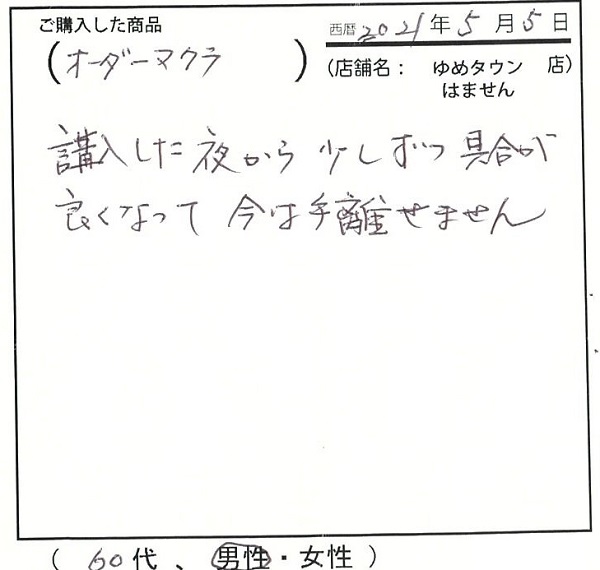 ご購入した商品
(オーダーマクラ)
西暦2021年5月5日
(店舗名: ゆめタウンはません 店)
講入した夜から少しずつ具合が
良くなって今は手離せません
(60代、男性・女性)